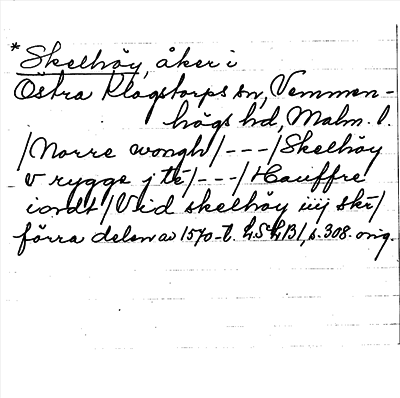 *Skelhöy, åker i
Östra Klagstorps sn, Vemmen-
högs hd, Malm. l.
/Norre wongh/---/Skelhöy
v rygge j tē/---/Hauffre
iordt/Vid skelhöy iij skr/
förra delen av 1570-t. LSLB1, s. 308. orig.